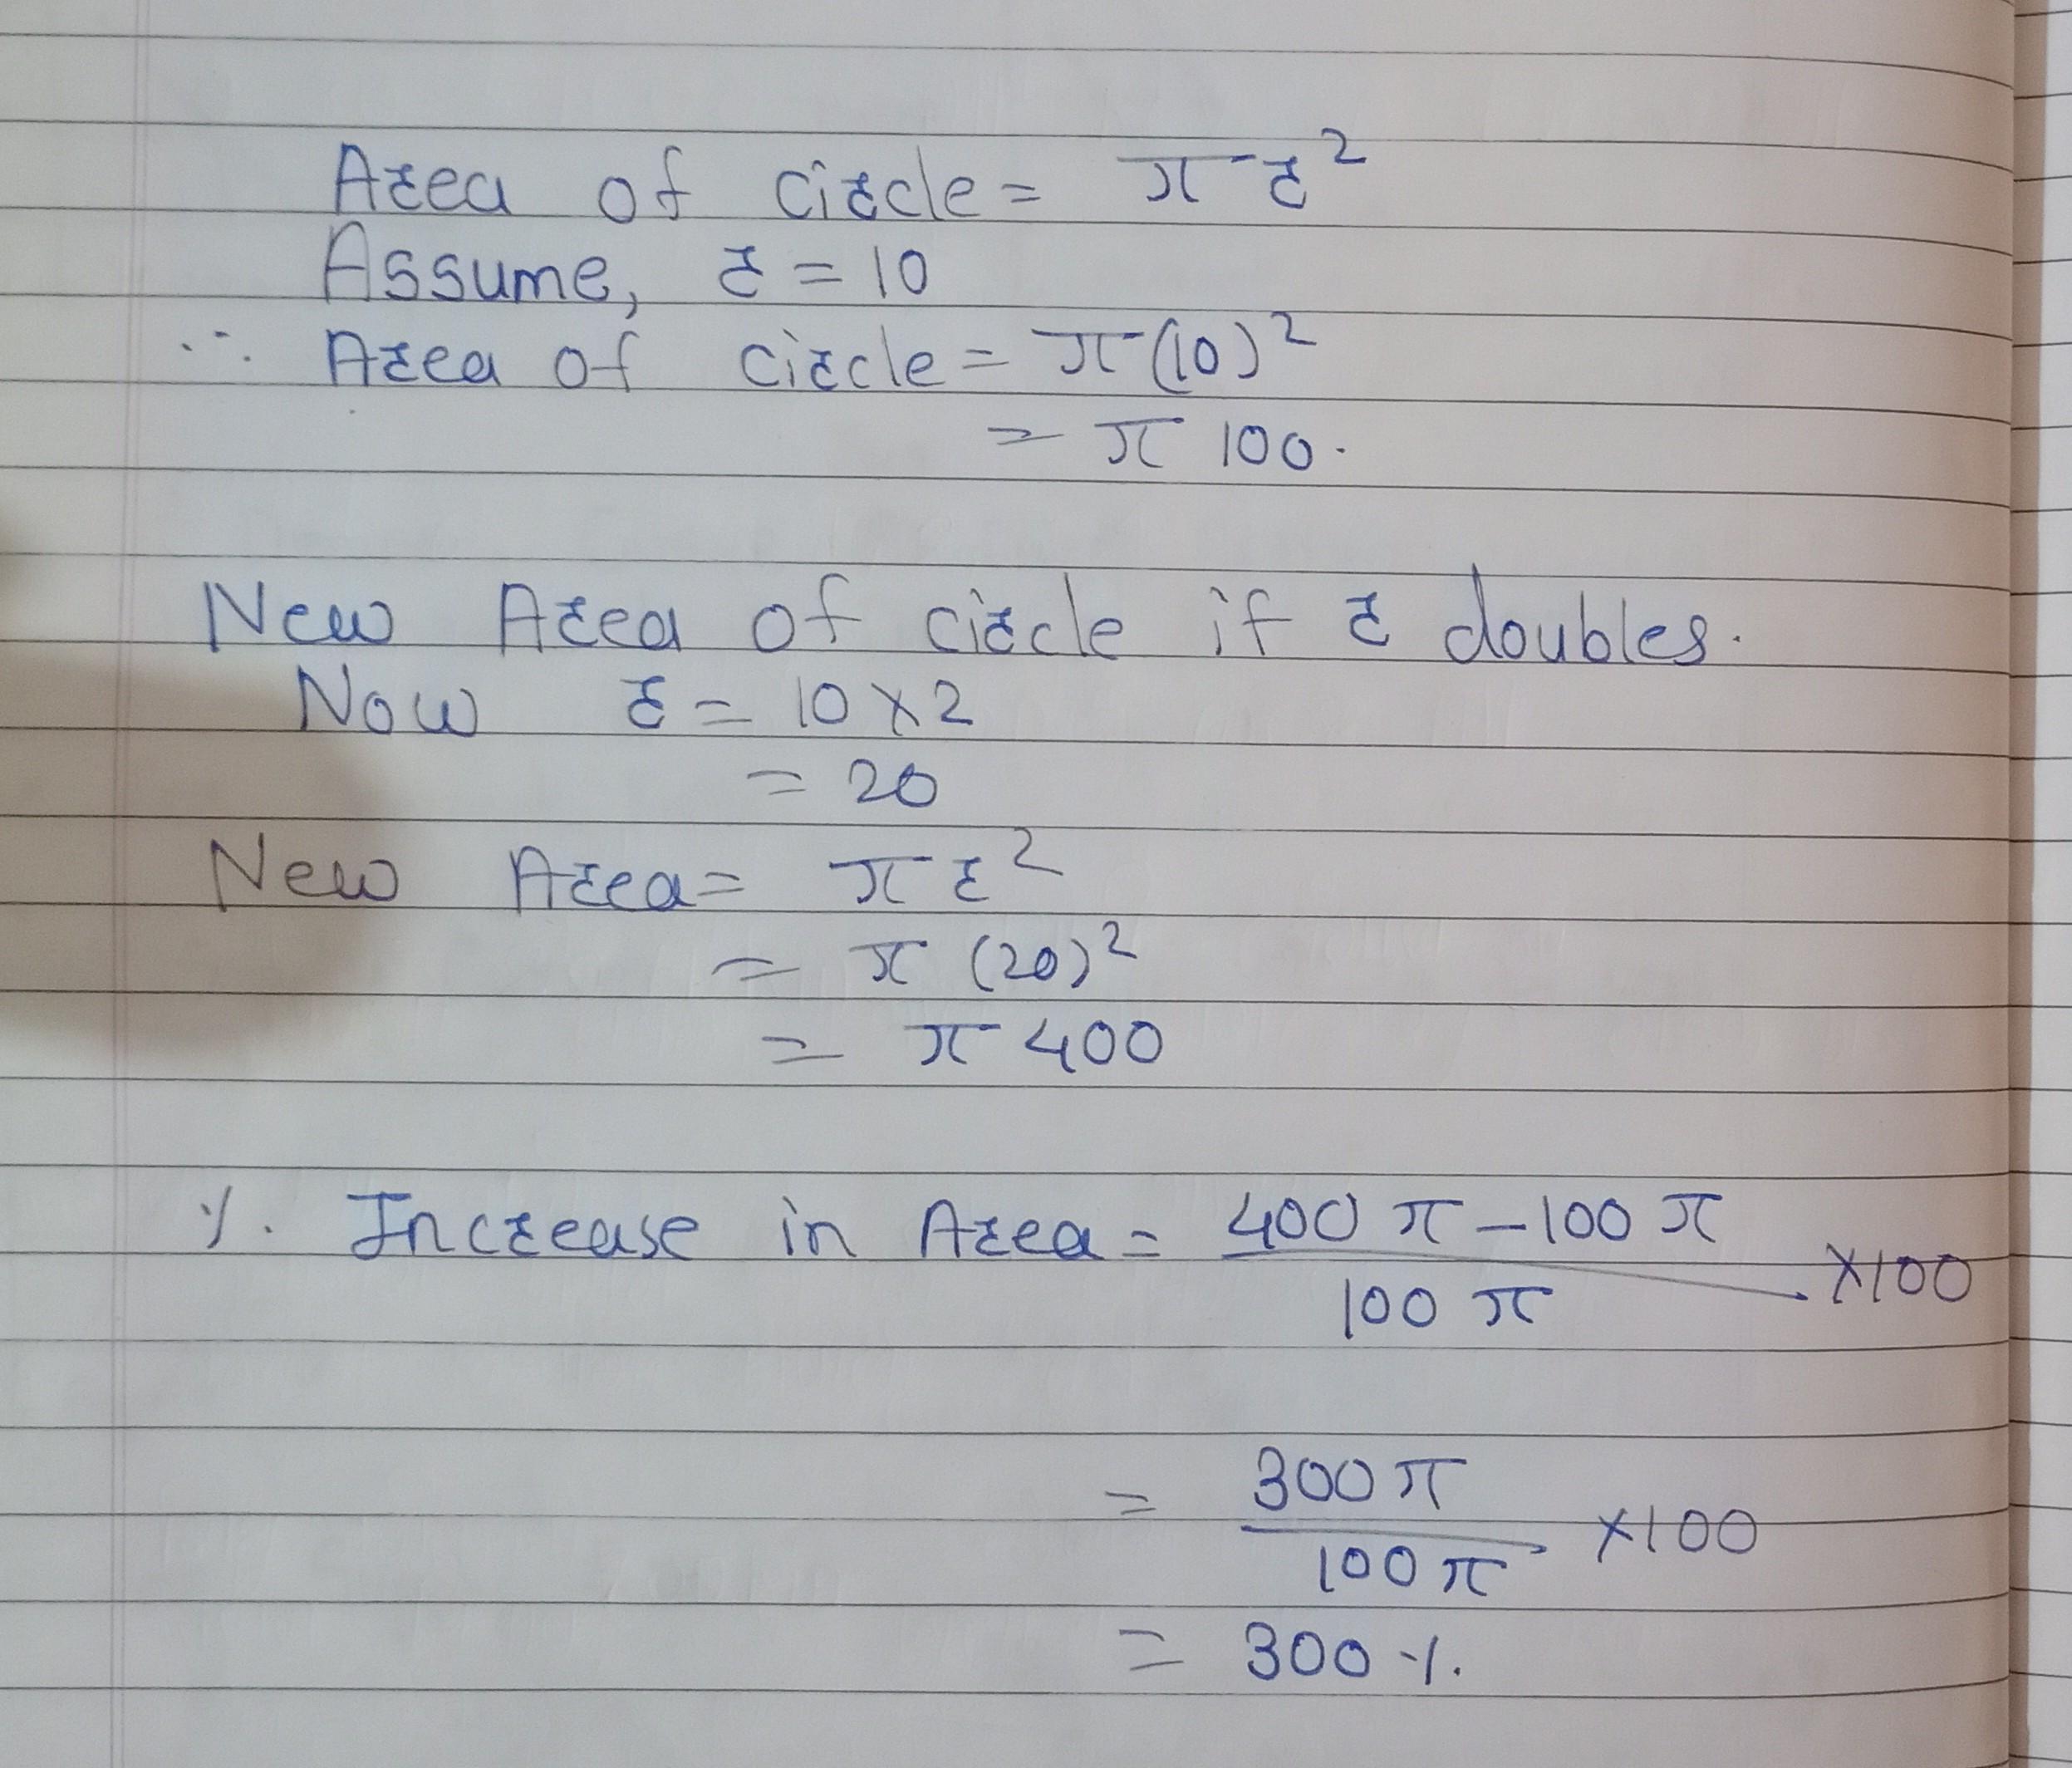 Area of circle = π r²
Assume, r = 10
∴ Area of circle = π (10)²
= π 100.
New Area of circle if r doubles.
Now r = 10 × 2
= 20
New Area = π r²
= π (20)²
= π 400
% Increase in Area = 400 π − 100 π
100 π
×100
= 300 π
100 π
×100
= 300 %